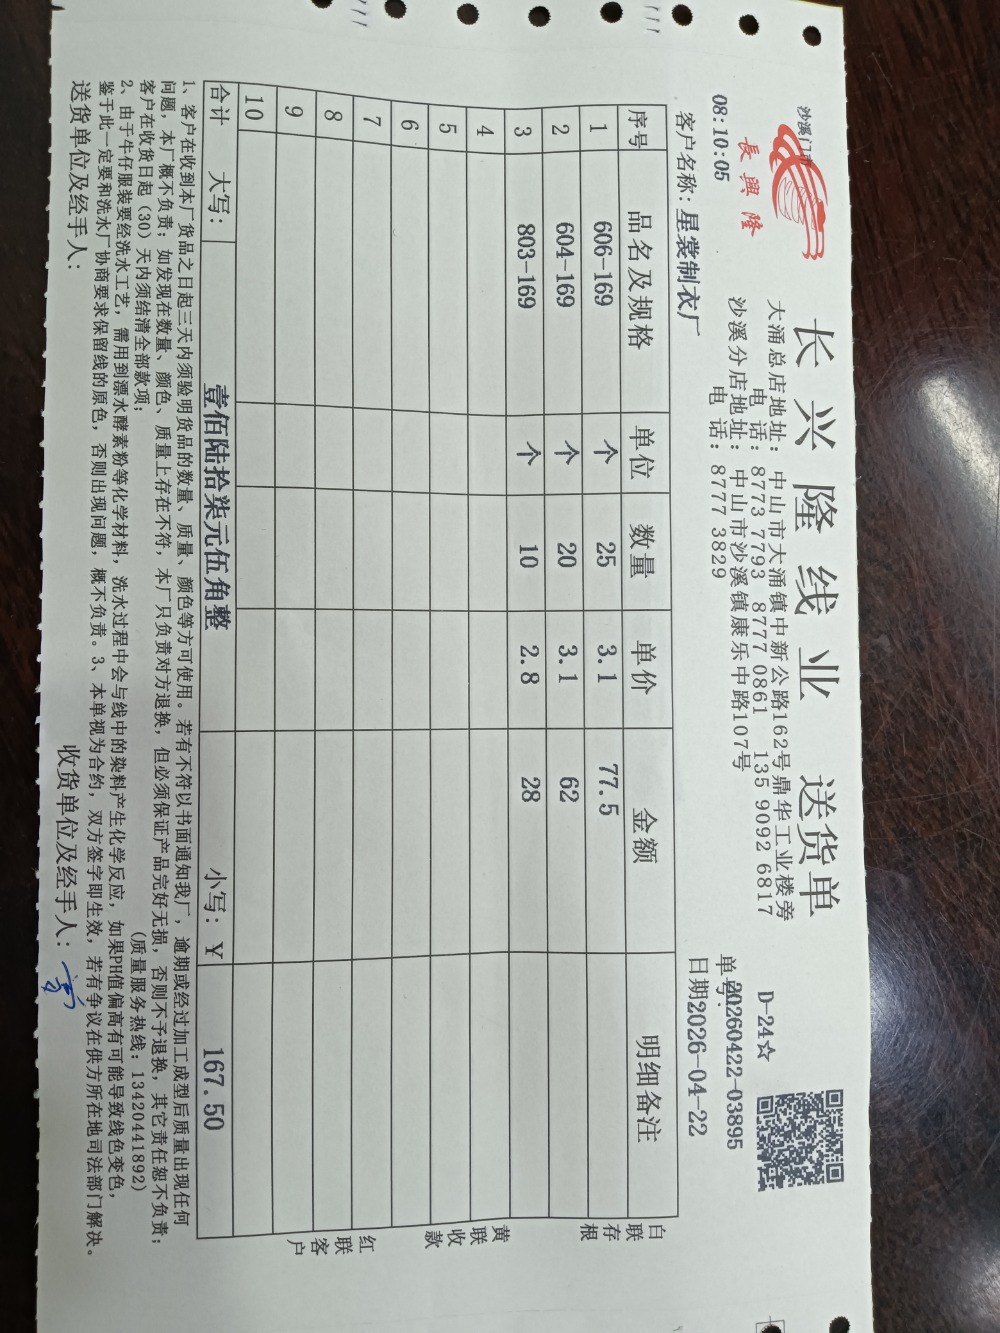 沙溪门市
長興隆
08:10:05
长兴隆线业 送货单
大涌总店地址：中山市大涌镇中新公路162号鼎华工业楼旁
电 话：8773 7793 8777 0861 135 9092 6817
沙溪分店地址：中山市沙溪镇康乐中路107号
电 话：8777 3829
D-24☆
单号:20260422-03895
客户名称：星裳制衣厂 日期2026-04-22
序号 品名及规格 单位 数量 单价 金额 明细备注
1 606-169 个 25 3.1 77.5
2 604-169 个 20 3.1 62
3 803-169 个 10 2.8 28
4
5
6
7
8
9
10
合计 大写：壹佰陆拾柒元伍角整 小写：¥ 167.50
白联存根
黄联收款
红联客户
1、客户在收到本厂货品之日起三天内须验明货品的数量、质量、颜色等方可使用。若有不符以书面通知我厂，逾期或经过加工成型后质量出现任何
问题，本厂概不负责；如发现在数量、颜色、质量上存在不符，本厂只负责对方退换，但必须保证产品完好无损，否则不予退换，其它责任恕不负责；
客户在收货日起（30）天内须结清全部款项； (质量服务热线：13420441892)
2、由于牛仔服装要经洗水工艺，需用到漂水酵素粉等化学材料，洗水过程中会与线中的染料产生化学反应，如果PH值偏高有可能导致线色变色，
鉴于此一定要和洗水厂协商要求保留线的原色，否则出现问题，概不负责。3、本单视为合约，双方签字即生效，若有争议在供方所在地司法部门解决。
送货单位及经手人： 收货单位及经手人：